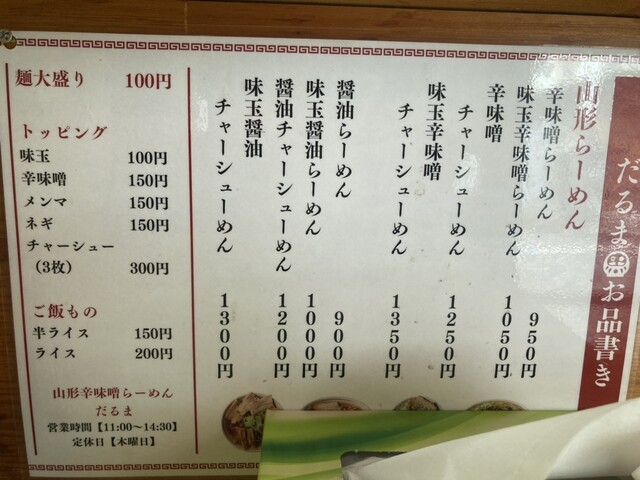 だるま お品書き
山形らーめん
辛味噌らーめん 950円
味玉辛味噌らーめん 1050円
辛味噌
チャーシューめん 1250円
味玉辛味噌
チャーシューめん 1350円
醤油らーめん 900円
味玉醤油らーめん 1000円
醤油チャーシューめん 1200円
味玉醤油
チャーシューめん 1300円
麺大盛り 100円
トッピング
味玉 100円
辛味噌 150円
メンマ 150円
ネギ 150円
チャーシュー
(3枚) 300円
ご飯もの
半ライス 150円
ライス 200円
山形辛味噌らーめん
だるま
営業時間【11:00〜14:30】
定休日【木曜日】